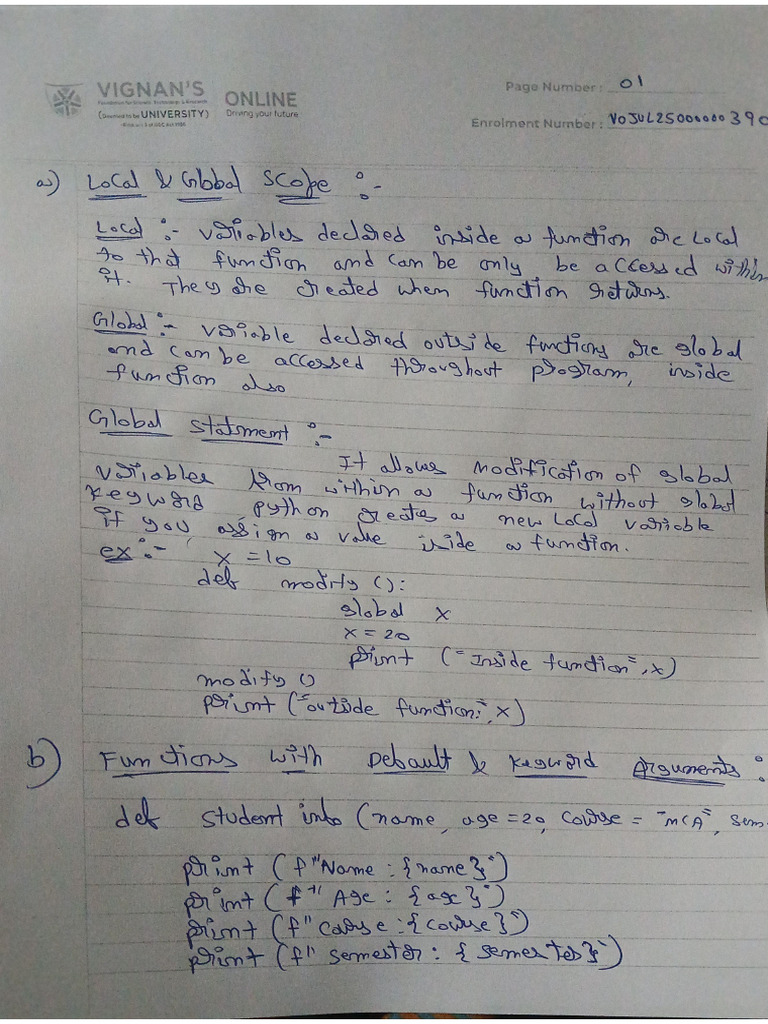 VIGNAN'S
Foundation for Science, Technology & Research
(Deemed to be UNIVERSITY)
-Estd. u/s 3 of UGC Act 1956
ONLINE
Driving your future
Page Number : 01
Enrolment Number : VOJUL25000000390
a) Local & Global Scope :-
Local :- variables declared inside a function are local
to that function and can be only be accessed within
it. They are created when function returns.
Global :- variable declared outside functions are global
and can be accessed throughout program, inside
function also
Global Statment :-
It allows modification of global
variables from within a function without global
keyword python creates a new local variable
if you assign a value inside a function.
ex :- x = 10
def modify ():
global x
x = 20
print ("Inside function", x)
modify ()
print ("outside function:", x)
b) Functions with Default & Keyword Arguments :
def student info (name, age = 20, course = "MCA", sem
print (f"Name : {name}")
print (f" Age : {age}")
print (f" course : {course}")
print (f" semester : {semester}")